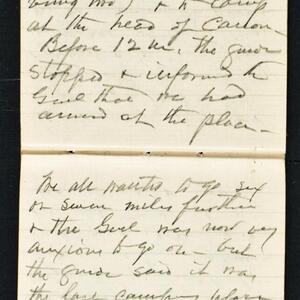 at the head of Cañon.
Before 12 m, the guide
stopped & informed the
Genl that we had
arrived at the place—
We all wanted to go six
or seven miles further
& the Genl was now very
anxious to go on — but
the guide said it was
the last camping place